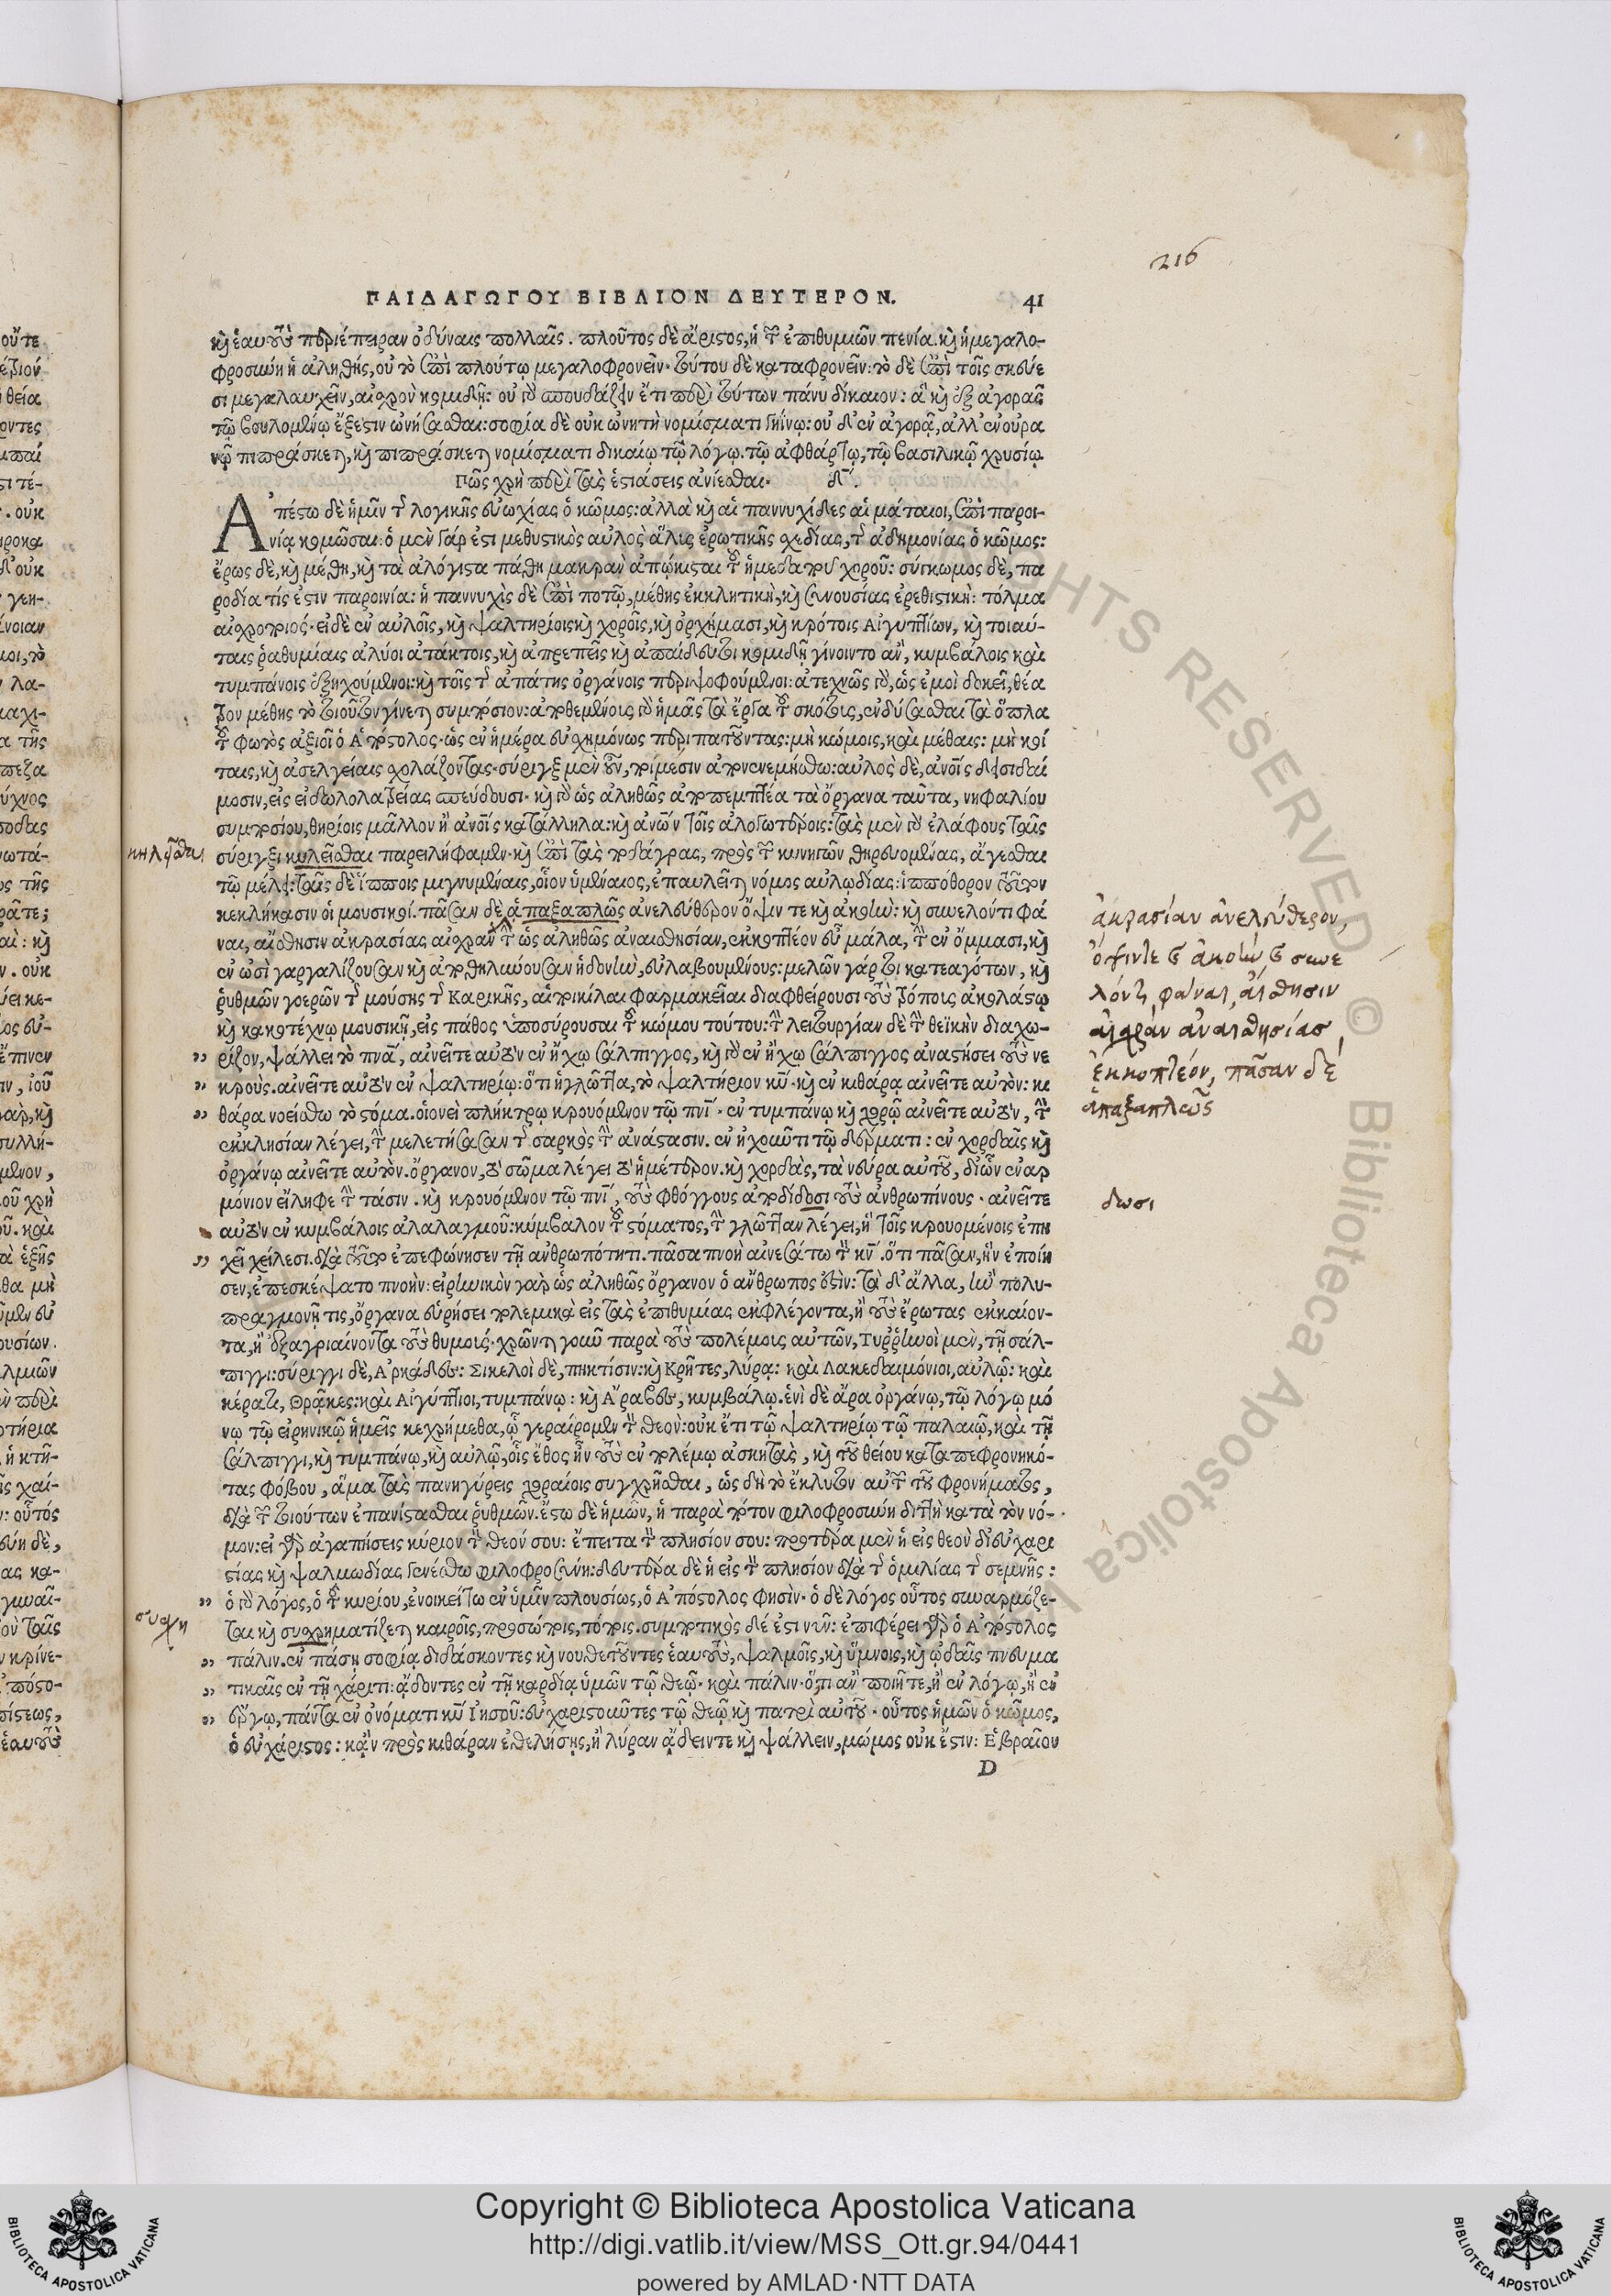 216
ΠΑΙΔΑΓΩΓΟΥ ΒΙΒΛΙΟΝ ΔΕΥΤΕΡΟΝ. 41
καὶ ἑαυτοὺς περιέπειραν ὀδύναις πολλαῖς. πλοῦτος δὲ ἄριστος, ἡ τῶν ἐπιθυμιῶν πενία. καὶ ἡ μεγαλο-
φροσύνη ἡ ἀληθής, οὐ τὸ ἐπὶ πλούτῳ μεγαλοφρονεῖν· τούτου δὲ καταφρονεῖν: τὸ δὲ ἐπὶ τοῖς σκεύε
σι μεγαλαυχεῖν, αἰσχρὸν κομιδῆ: οὐ γὰρ σπουδάζειν ἔτι περὶ τούτων πάνυ δίκαιον: ἃ καὶ ἐξ ἀγορᾶς
τῷ βουλομένῳ ἔξεστιν ὠνήσασθαι: σοφία δὲ οὐκ ὠνητὴ νομίσματι γηΐνῳ: οὐδ' ἐν ἀγορᾷ, ἀλλ' ἐν οὐρα
νῷ πιπράσκεται, καὶ πιπράσκεται νομίσματι δικαίῳ τῷ λόγῳ. τῷ ἀφθάρτῳ, τῷ βασιλικῷ χρυσίῳ.
Πῶς χρὴ περὶ τὰς ἑστιάσεις ἀνίεσθαι. δ΄.
Ἀπέστω δὲ ἡμῖν τῆς λογικῆς εὐωχίας ὁ κῶμος: ἀλλὰ καὶ αἱ παννυχίδες αἱ μάταιοι, ἐπὶ παροι-
νίᾳ κομῶσαι: ὁ μὲν γάρ ἐστι μεθυστικὸς αὐλὸς ἅλις ἐρωτικῆς σχεδίας, τῆς ἀδημονίας ὁ κῶμος:
ἔρως δὲ, καὶ μέθη, καὶ τὰ ἀλόγιστα πάθη μακρὰν ἀπῴκισται τοῦ ἡμεδαποῦ χοροῦ: σύγκωμος δὲ, πα
ροδία τίς ἐστιν παροινία: ἡ παννυχὶς δὲ ἐπὶ ποτῷ, μέθης ἐκκλητικὴ, καὶ συνουσίας ἐρεθιστική: τόλμα
αἰσχροποιός· εἰ δὲ ἐν αὐλοῖς, καὶ ψαλτηρίοις καὶ χοροῖς, καὶ ὀρχήμασι, καὶ κρότοις Αἰγυπτίων, καὶ τοιαύ-
ταις ῥαθυμίαις ἀλύοι ἀτάκτοις, καὶ ἀπρεπεῖς καὶ ἀπαίδευτοι κομιδῇ γίνοιντο ἂν, κυμβάλοις καὶ
τυμπάνοις ἐξηχούμενοι: καὶ τοῖς τῆς ἀπάτης ὀργάνοις περιψοφούμενοι: ἀτεχνῶς γὰρ, ὡς ἐμοὶ δοκεῖ, θέα
τρον μέθης τὸ τοιοῦτον γίνεται συμπόσιον: ἀποθεμένοις γὰρ ἡμᾶς τὰ ἔργα τοῦ σκότους, ἐνδύσασθαι τὰ ὅπλα
τοῦ φωτὸς ἀξιοῖ ὁ Ἀπόστολος· ὡς ἐν ἡμέρα εὐσχημόνως περιπατοῦντας: μὴ κώμοις, καὶ μέθαις: μὴ κοί
ταις, καὶ ἀσελγείαις σχολάζοντας· σύριγξ μὲν οὖν, ποιμέσιν ἀπονενεμήσθω: αὐλὸς δὲ, ἀνοῖς δεισιδαί
μοσιν, εἰς εἰδωλολατρείας σπεύδουσι· καὶ γὰρ ὡς ἀληθῶς ἀποπεμπτέα τὰ ὄργανα ταῦτα, νηφαλίου
συμποσίου, θηρίοις μᾶλλον ἢ ἀνοῖς κατάλληλα: καὶ ἀνῶν τοῖς ἀλογωτέροις: τὰς μὲν γὰρ ἐλάφους ταῖς
κηλεῖσθαι σύριγξι κυλεῖσθαι παρειλήφαμεν· καὶ ἐπὶ τὰς ποδάγρας, πρὸς τῶν κυνηγῶν θηρευομένας, ἄγεσθαι
τῷ μέλει: ταῖς δὲ ἵπποις μιγνυμέναις, οἷον ὑμέναιος, ἐπαυλεῖται νόμος αὐλῳδίας: ἱππόθορον τοῦτον
κεκλήκασιν οἱ μουσικοί. πᾶσαν δὲ ἁπαξαπλῶς ἀνελεύθερον ὄψιν τε καὶ ἀκοὴν: καὶ συνελόντι φά
ναι, αἴσθησιν ἀκρασίας αἰσχρὰν τὴν ὡς ἀληθῶς ἀναισθησίαν, ἐκκοπτέον εὖ μάλα, τὴν ἐν ὄμμασι, καὶ
ἐν ὠσὶ γαργαλίζουσαν καὶ ἀποθηλύνουσαν ἡδονὴν, εὐλαβουμένους: μελῶν γάρ τοι κατεαγότων, καὶ
ῥυθμῶν γοερῶν τῆς μούσης τῆς Καρικῆς, αἱ ποικίλαι φαρμακεῖαι διαφθείρουσι τοὺς τρόποις ἀκολάστῳ
καὶ κακοτέχνῳ μουσικῇ, εἰς πάθος ὑποσύρουσαι τοῦ κώμου τούτου: τὴν λειτουργίαν δὲ τὴν θεϊκὴν διαχω-
ρίζον, ψάλλει τὸ πνᾶ, αἰνεῖτε αὐτὸν ἐν ἤχῳ σάλπιγγος, καὶ γὰρ ἐν ἤχω σάλπιγγος ἀναστήσει τοὺς νε
κρούς. αἰνεῖτε αὐτὸν ἐν ψαλτηρίῳ: ὅτι ἡ γλῶττα, τὸ ψαλτήριον κῦ· καὶ ἐν κιθάρα αἰνεῖτε αὐτὸν: κι
θάρα νοείσθω τὸ στόμα. οἱονεὶ πλήκτρῳ κρουόμενον τῷ πνῖ· ἐν τυμπάνῳ καὶ χορῷ αἰνεῖτε αὐτὸν, τὴν
ἐκκλησίαν λέγει, τὴν μελετήσασαν τῆς σαρκὸς τὴν ἀνάστασιν. ἐν ἠχοῦντι τῷ δέρματι: ἐν χορδαῖς καὶ
ὀργάνῳ αἰνεῖτε αὐτὸν. ὄργανον, τὸ σῶμα λέγει τὸ ἡμέτερον. καὶ χορδὰς, τὰ νεῦρα αὐτοῦ, δι' ὧν ἐναρ
μόνιον εἴληφε τὴν τάσιν. καὶ κρουόμενον τῷ πνῖ, τοὺς φθόγγους ἀποδίδοσι τοὺς ἀνθρωπίνους· αἰνεῖτε
αὐτὸν ἐν κυμβάλοις ἀλαλαγμοῦ: κύμβαλον τοῦ στόματος, τὴν γλῶτταν λέγει, ἣ τοῖς κρουομένοις ἐπη
χεῖ χείλεσι. διὰ τοῦτο ἐπεφώνησεν τῇ ἀνθρωπότητι. πᾶσα πνοὴ αἰνεσάτω τὸν κν. ὅτι πᾶσαν, ἣν ἐποίη
σεν, ἐπεσκέψατο πνοὴν: εἰρηνικὸν γὰρ ὡς ἀληθῶς ὄργανον ὁ ἄνθρωπος ἐστὶν: τὰ δ' ἄλλα, ἢν πολυ-
πραγμονῇ τις, ὄργανα εὑρήσει πολεμικὰ εἰς τὰς ἐπιθυμίας ἐκφλέγοντα, ἢ τοὺς ἔρωτας ἐκκαίον-
τα, ἢ ἐξαγριαίνοντα τοὺς θυμοίς· χρῶνται γοῦν παρὰ τοὺς πολέμοις αὐτῶν, Τυῤῥηνοὶ μὲν, τῇ σάλ-
πιγγι: σύριγγι δὲ, Ἀρκάδες: Σικελοὶ δὲ, πηκτίσιν: καὶ Κρῆτες, λύρᾳ: καὶ Λακεδαιμόνιοι, αὐλῷ: καὶ
κέρατι, Θρᾷκες: καὶ Αἰγύπτιοι, τυμπάνῳ: καὶ Ἄραβες, κυμβάλῳ. ἑνὶ δὲ ἄρα ὀργάνῳ, τῷ λόγῳ μό
νῳ τῷ εἰρηνικῷ ἡμεῖς κεχρήμεθα, ᾧ γεραίρομεν τὸν θεὸν: οὐκ ἔτι τῷ ψαλτηρίῳ τῷ παλαιῷ, καὶ τῇ
σάλπιγγι, καὶ τυμπάνῳ, καὶ αὐλῷ, οἷς ἔθος ἦν τοὺς ἐν πολέμῳ ἀσκητὰς, καὶ τοῦ θείου καταπεφρονηκό-
τας φόβου, ἅμα τὰς πανηγύρεις χοραίοις συγχρῆσθαι, ὡς δὴ τὸ ἔκλυτον αὐτῶν τοῦ φρονήματος,
διὰ τῶν τοιούτων ἐπανίστασθαι ῥυθμῶν. ἔστω δὲ ἡμῶν, ἡ παρὰ πότον φιλοφροσύνη διττὴ κατὰ τὸν νό-
μον: εἰ γὰρ ἀγαπήσεις κύριον τὸν θεόν σου: ἔπειτα τὸν πλησίον σου: προτέρα μὲν ἡ εἰς θεὸν δι' εὐχαρι
στίας καὶ ψαλμωδίας γενέσθω φιλοφροσύνη: δευτέρα δὲ ἡ εἰς τὸν πλησίον διὰ τῆς ὁμιλίας τῆς σεμνῆς:
ὁ γὰρ λόγος, ὁ τοῦ κυρίου, ἐνοικείτω ἐν ὑμῖν πλουσίως, ὁ Ἀπόστολος φησίν· ὁ δὲ λόγος οὗτος συναρμόζε-
ται καὶ συσχηματίζεται καιροῖς, προσώποις, τόποις. συμποτικὸς δέ ἐστι νῦν: ἐπιφέρει γὰρ ὁ Ἀπόστολος
πάλιν. ἐν πάσῃ σοφίᾳ διδάσκοντες καὶ νουθετοῦντες ἑαυτοὺς, ψαλμοῖς, καὶ ὕμνοις, καὶ ᾠδαῖς πνευμα
τικαῖς ἐν τῇ χάριτι: ᾄδοντες ἐν τῇ καρδίᾳ ὑμῶν τῷ θεῷ· καὶ πάλιν· ὅ,τι ἂν ποιῆτε, ἢ ἐν λόγῳ, ἢ ἐν
ἔργῳ, πάντα ἐν ὀνόματι κῦ Ἰησοῦ: εὐχαριστοῦντες τῷ θεῷ καὶ πατρὶ αὐτοῦ· οὗτος ἡμῶν ὁ κῶμος,
ὁ εὐχάριστος: κᾂν πρὸς κιθάραν ἐθελήσῃς, ἢ λύραν ᾄδειν τε καὶ ψάλλειν, μώμος οὐκ ἔστιν: Ἑβραῖον
D
ἀκρασίαν ἀνελεύθερον,
ὄψιν τε καὶ ἀκοὴν καὶ συνε
λόντι φάναι, αἴσθησιν
αἰσχρὰν ἀναισθησίας,
ἐκκοπτέον, πᾶσαν δὲ
ἁπαξαπλῶς
δωσι
συσχη
Copyright © Biblioteca Apostolica Vaticana
http://digi.vatlib.it/view/MSS_Ott.gr.94/0441
powered by AMLAD·NTT DATA
BIBLIOTECA APOSTOLICA VATICANA
BIBLIOTECA APOSTOLICA VATICANA